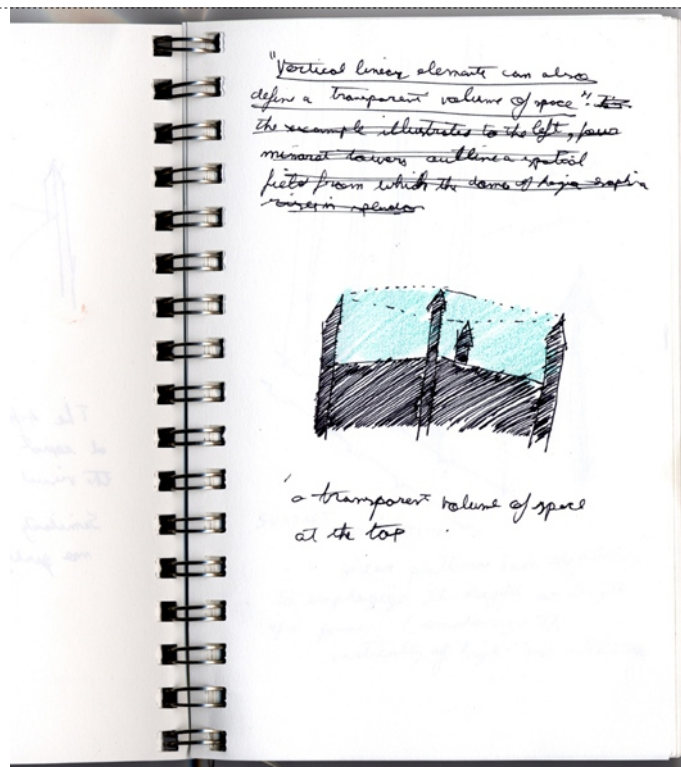 "Vertical linear elements can also
define a transparent volume of space".
the example illustrates to the left, four
minaret towers outline a spatial
field from which the dome of hagia sophia
rises in splendor
'a transparent volume of space
at the top